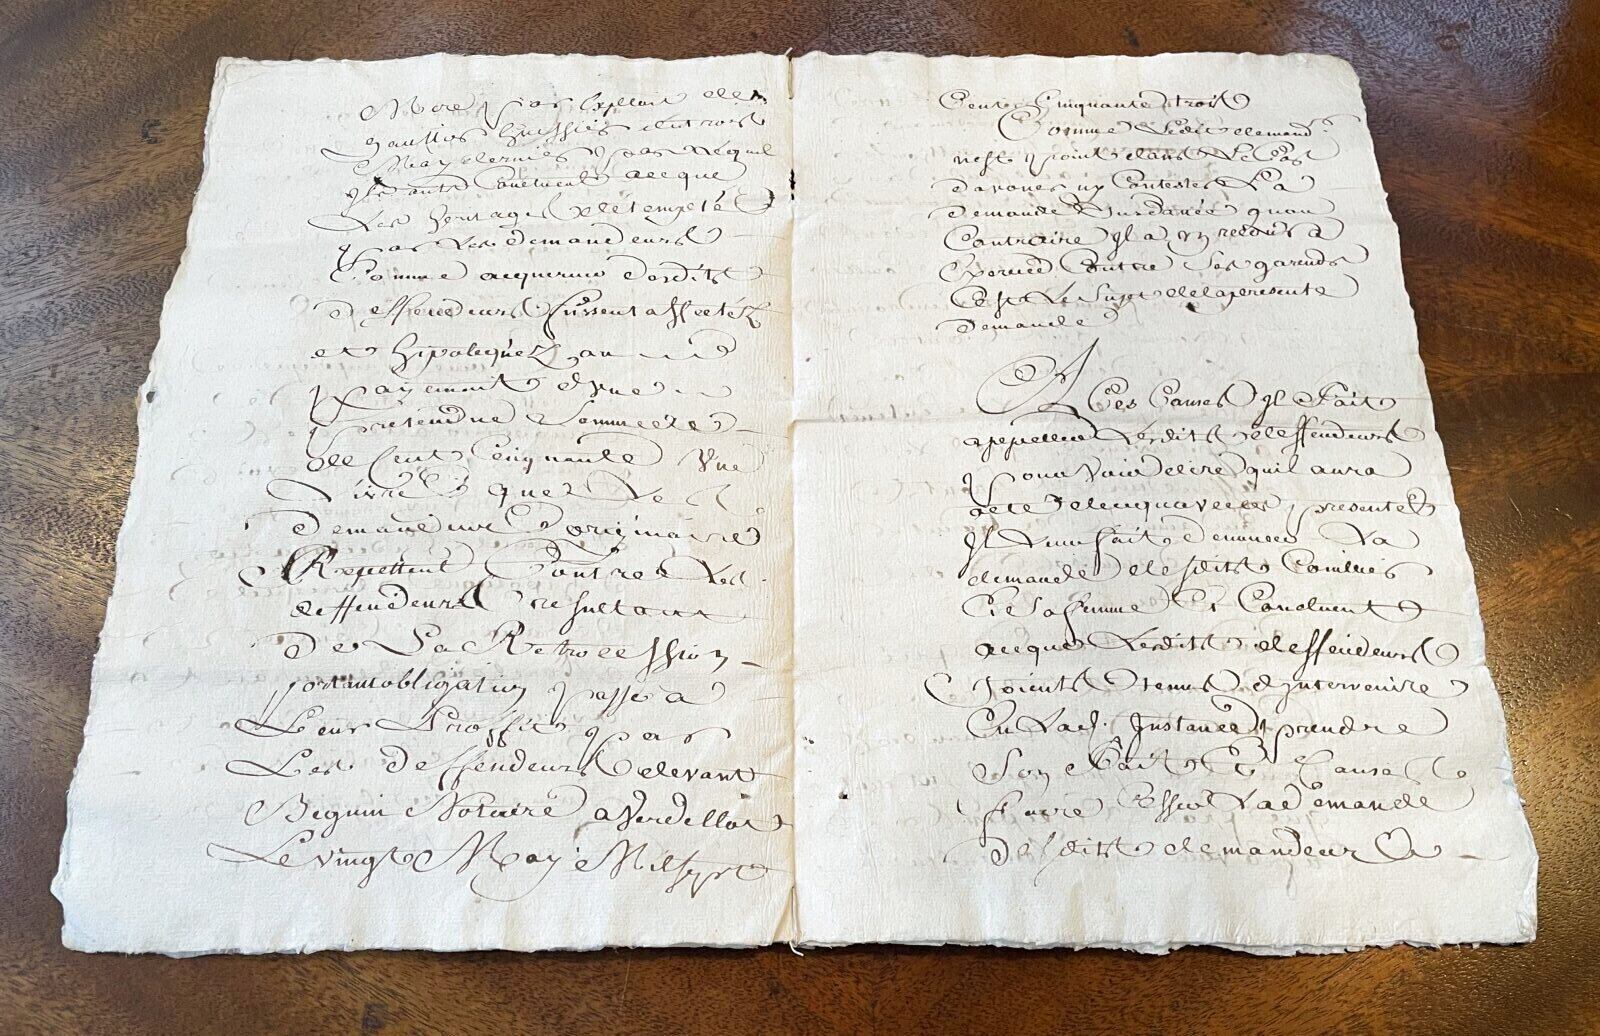 par Exploit de
gaultier huissier du trois
May dernier par lequel
Ils ont Conclu a ce que
Les heritages detemptéz
par Les demandeurs
Comme acquereurs desdits
deffendeurs fussent affectéz
et hipotequéz au
payement d'une
pretendue Somme de
de Cent Cinquante Une
Livre que Les
demandeurs originaires
Repettent Contre Les
deffendeurs resultant
De La Retrocession
portant obligation passé a
Leur Proffit par
Les Deffendeurs devant
Beguin Notaire a Verdellot
Le vingt May Mil sept
Cent Cinquante trois
Comme Ledit demandr
nest point dans Le Cas
davouer ny Contester La
demande quau
Contraire Il a un recours a
Exercer Contre Ses garends
Cest Le Sujet de la presente
demande
A Ces Causes Il Fait
appeller Lesdits deffendeurs
pour Voir dire quil aura
acte de ce quavec ces presentes
Il Leur fait denoncer La
demande desdits
et Sa femme Et Concluent
a ce que Lesdits deffendeurs
Soient tenus dIntervenir
En Lad. Instance prendre
Son Fait Et Cause
faire Cesser La demande
Desdits demandeurs